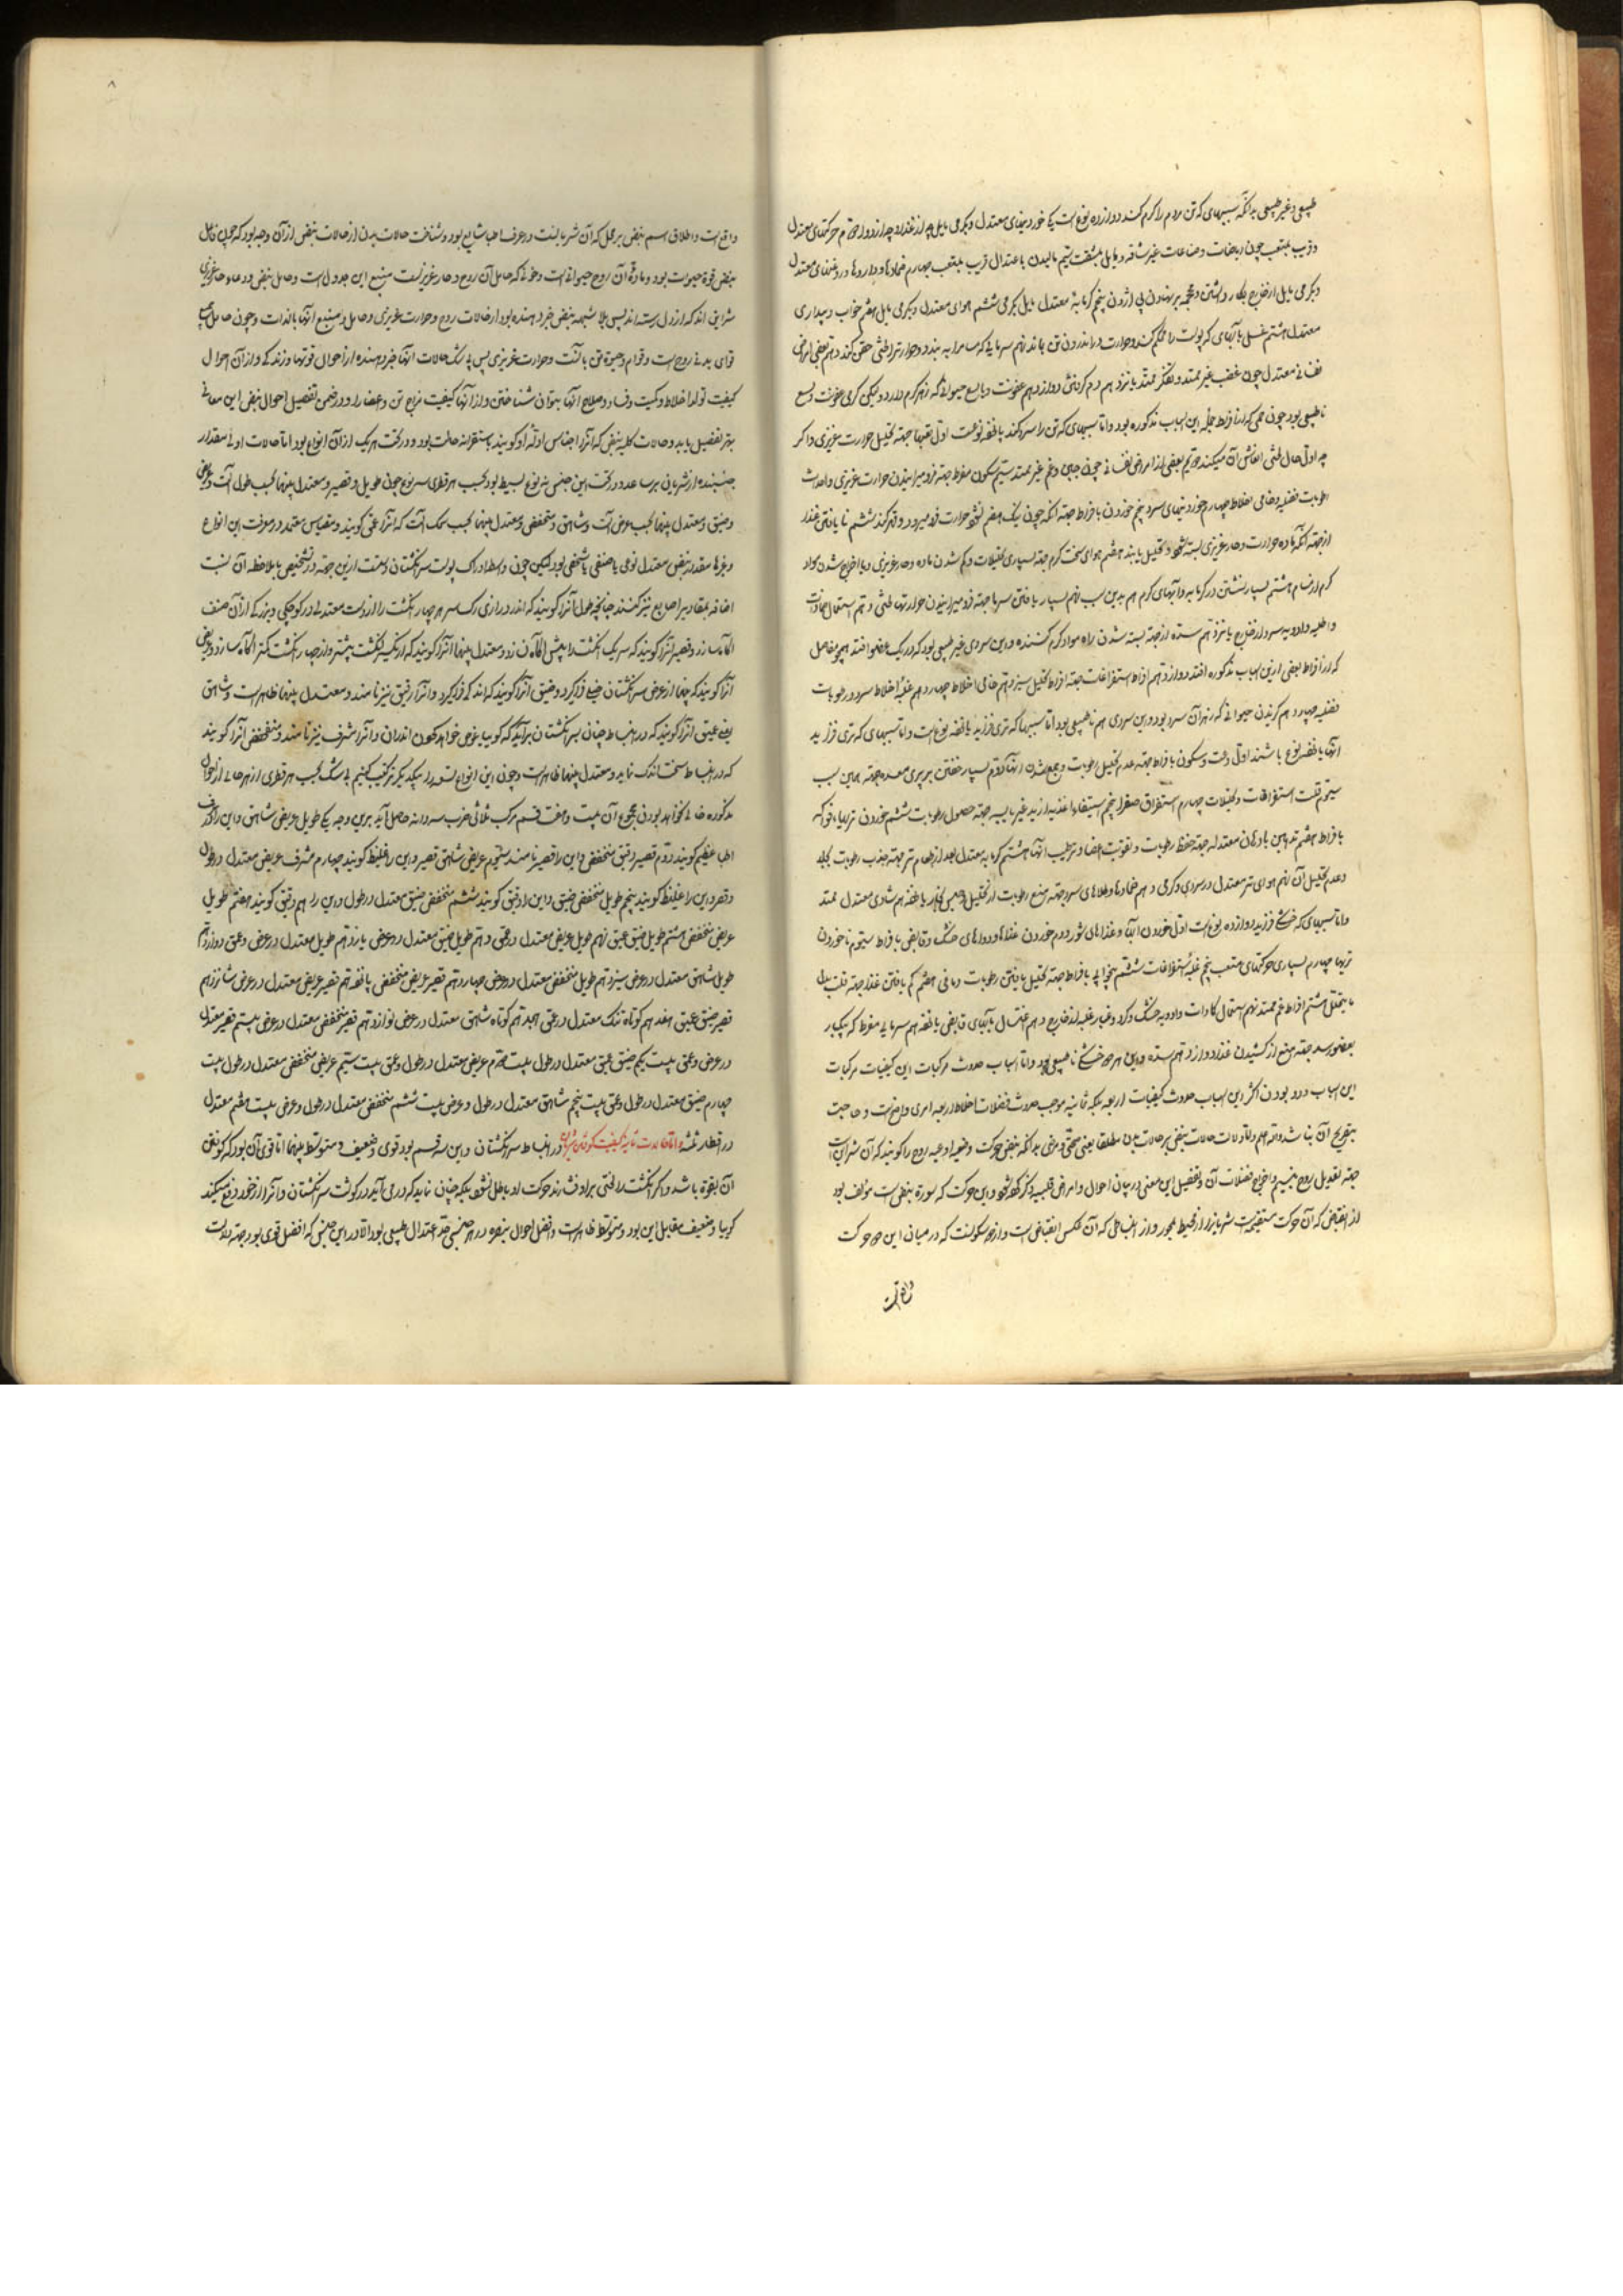 طبیعی و غیر طبیعی بدانکه سببهای که تن مردم را گرم کند دوازده نوع است یکی خوردنیهای معتدل و بگرمی مایل چه از غذا و چه از دوا دویم حرکتهای معتدل
و قریب بتعب چون ریاضات و صناعات غیر شاقه و مایل بمشقت سیم مالیدن باعتدال قریب بتعب چهارم ضمادها و داروها و روغنهای معتدل
و بگرمی مایل از خارج بکار داشتن و محجمه بر نهادن بی آژدن پنجم گرمابهٔ معتدل مایل بگرمی ششم هوای معتدل و بگرمی مایل هفتم خواب و بیداری
معتدل هشتم غسل بآبهای که پوست را محکم کند و حرارت در اندرون تن بماند نهم سرمایی که مسام را ببندد و حرارت را حقن کند دهم بعضی اعراض
نفسانی معتدل چون غضب غیر ممتد و تفکر ممتد یازدهم ورم گرم دوازدهم عفونت و لسع حیوانی که زهر گرم دارد و لیکن گرمی عفونت و لسع
ناطبیعی بود چون حمی که از افراط جملهٔ این اسباب مذکوره بود و اما سببهای که تن را سرد کند پانزده نوعست اول تعبها جهتهٔ تحلیل حرارت غریزی و اگر
چه اول حال انعاش آن میکند دویم بعضی اعراض نفسانی چون جبن و غم غیر ممتد سیم سکون مفرط جهتهٔ فرو میرانیدن حرارت غریزی و احداث
رطوبت فضلیه و خامی اخلاط چهارم خوردنیهای سرد پنجم خوردن بافراط جهتهٔ آنکه چون نیک هضم نشود حرارت فرو میرد ششم نا یافتن غذا
از جهتهٔ آنکه ماده حرارت و حار غریزی بسته شود و تحلیل یابد هفتم هوای سخت گرم جهتهٔ بسیاری تحلیلات و کم شدن ماده و حار غریزی و با اخراج شدن مواد
گرم از مسام هشتم بسیار نشستن در گرمابه و آبهای گرم هم بدین سبب نهم بسیار یافتن سرما جهتهٔ فرو میرانیدن حرارت دهم استعمال ضمادات
و اطلیه و ادویه سرد از خارج یازدهم سده از جهتهٔ بسته شدن راه مواد گرم کننده و این سردی غیر طبیعی بود که در یک عضو افتد همچو مفاصل
که از افراط بعضی ازین اسباب مذکوره افتد دوازدهم افراط استفراغات جهتهٔ افراط تحلیل سیزدهم خامی اخلاط چهاردهم غلبهٔ اخلاط سرد و رطوبات
فضلیه پانزدهم گزیدن حیوانی که زهر آن سرد بود و این سردی هم ناطبیعی بود اما سببها که تری فزاید پانزده نوع است و اما سببهای که تری فزاید
آنها پانزده نوع باشند اول دعت و سکون بافراط جهتهٔ عدم تحلیل رطوبت و جمع شدن آنها دویم بسیار خفتن بر پری معده جهتهٔ همین سبب
سیم قلت استفراغات و تحلیلات چهارم استفراغ صفرا پنجم استیفاء اغذیه زاید غیر یابسه جهتهٔ حصول رطوبت ششم خوردن تریها و فواکه
بافراط هفتم تدهین بادهان معتدله جهتهٔ حفظ رطوبات و تقویت اعضا و ترطیب آنها هشتم گرمابه معتدل بعد از طعام تر جهتهٔ جذب رطوبت بجلد
و عدم تحلیل آن نهم هوای تر معتدل در سردی و گرمی دهم ضمادها و طلاهای سرد جهتهٔ منع رطوبت از تحلیل پانزدهم شادی معتدل ممتد
و اما سببهای که خشکی فزاید دوازده نوع است اول خوردن آبها و غذاهای شور دوم خوردن غذاها و دواهای خشک و قابض بافراط سیم ناخوردن
تریها چهارم بسیاری حرکتهای متعب پنجم غلبهٔ استفراغات ششم بیخوابی بافراط جهتهٔ تحلیل یافتن رطوبات دماغی هفتم کم یافتن غذا جهتهٔ قلت بدل
ما یتحلل هشتم افراط غم ممتد نهم استعمال کمادات و ادویه خشک و گرد و غبار غلبه از خارج دهم اغتسال بآبهای قابض یازدهم سرمای مفرط که بیکبار
بعضو رسد جهتهٔ منع از کشیدن غذا دوازدهم سده و این هر دو خشکی ناطبیعی بود و اما اسباب حدوث مرکبات این کیفیات مرکبات
این اسباب و درد بودن اکثر این اسباب حدوث کیفیات اربعه بلکه ثمانیه موجب حدوث فضلات اخلاط اربعه امری واضح است و حاجت
بتصریح آن نباشد و الله اعلم و اما دلالات حالات نبض بر حالات بدن مطلقا یعنی صحی و مرضی بدانکه نبض حرکت وضعیه اوعیه روح را گویند که آن شراینست
جهتهٔ تعدیل روح بنسیم و اخراج فضلات آن و تفصیل این معنی در بیان احوال و امراض قلبیه ذکر کرده شود و این حرکت که صورة نبض است مؤلف بود
از انقباضی که آن حرکت مستقیمت شریانرا از محیط بمحور و از انبساطی که آن عکس انقباض است و از دو سکونست که در میان این دو حرکت
واقع است
واقع است و اطلاق اسم نبض بر محل که آن شریانست در عرف اطبا شایع بود و شناخت حالات بدن از حالات نبض از آن وجه بود که چون فاعل
نبض قوة حیوانیت بود و ماده آن روح حیوانی است و خونی که حامل آن روح و حار غریزیست منبع این هر دو دل است و حامل نبض و وعاء حار غریزی
شراین اند که از دل رسته اند پس بلا شبهه نبض خبر دهنده بود از حالات روح و حرارت غریزی و حامل و منبع آنها بالذات و چون حامل جمیع
قوای بدنی روح است و قوام و حیوة تن بآنست و حرارت غریزی پس بی شک حالات آنها خبر دهنده از احوال قوتها و زندگی و از آن احوال
کیفیت تولد اخلاط و کمیت و فساد و صلاح آنها بتوان شناختن و از آنها کیفیت مزاج تن و اعضا را و در ضمن تفصیل احوال نبض این معانی
بهتر تفصیل یابد و حالات کلیه نبض که آنرا اجناس ادله او گویند باستقرا نه حالت بود و در تحت هر یک از آن انواع بود اما حالات اولی مقدار
جنبنده از شریانی بر سه عدد و در تحت این جنس نه نوع بسیط بود بحسب هر قطری سه نوع چون طویل و قصیر و معتدل بینهما بحسب طول آن و عریض
و ضیق و معتدل بینهما بحسب عرض آن و شاهق و منخفض و معتدل بینهما بحسب سمک آن که آنرا عمق گویند و مقیاس معتمد در معرفت این انواع
و غیرها مقدار نبض معتدل نوعی یا صنفی یا شخصی بود لیکن چون واسطه ادراک پوست سر انگشتان و لمس است ازین جهته در تشخیص با ملاحظه آن نسبت
اضافه بمقادیر اصابع نیز کنند چنانچه طویل آنرا گویند که اندر درازی رگ سر هر چهار انگشت را از دست معتدلی در کوچکی و بزرگی از آن صنف
آگاه سازد و قصیر آنرا گویند که سر یک انگشت را بیش آگاه نسازد و معتدل بینهما آنرا گویند که از یک انگشت بیشتر و از چهار انگشت کمتر آگاه سازد و عریض
آنرا گویند که پهنا از عرض سر انگشتان جمله فرا گیرد و ضیق آنرا گویند که اندکی فرا گیرد و آنرا دقیق نیز نامند و معتدل بینهما ظاهر است و شاهق
یعنی عمیق آنرا گویند که در انبساط چنان بسر انگشتان برآید که گوییا غوص خواهد کردن اندر آن و آنرا مشرف نیز نامند و منخفض آنرا گویند
که در انبساط سخت اندک نماید و معتدل بینهما ظاهر است و چون این انواع تسعه را با یکدیگر ترکیب کنیم بی شک بحسب هر قطری از هر حالی از احوال
مذکوره خالی نخواهد بودن مجموع آن بیست و هفت قسم مرکب ثلاثی ضرب سه در نه حاصل آید برین وجه یکی طویل عریض شاهق و این را در عرف
اطبا عظیم گویند دویم قصیر دقیق منخفض و این را قصیر نامند سیوم عریض شاهق قصیر و این را غلیظ گویند چهارم مشرف عریض معتدل در طول
و قصر و این را غلیظ گویند پنجم طویل منخفض ضیق و این را دقیق گویند ششم منخفض ضیق معتدل در طول و این را هم دقیق گویند هفتم طویل
عریض منخفض هشتم طویل ضیق عمیق نهم طویل عریض معتدل در عمق دهم طویل ضیق معتدل در عمق یازدهم طویل معتدل در عرض و عمق دوازدهم
طویل شاهق معتدل در عرض سیزدهم طویل منخفض معتدل در عرض چهاردهم قصیر عریض منخفض پانزدهم قصیر عریض معتدل در عرض شانزدهم
قصیر ضیق عمیق هفدهم کوتاه تنگ معتدل در عمق هجدهم کوتاه شاهق معتدل در عرض نوازدهم قصیر منخفض معتدل در عرض بیستم قصیر معتدل
در عرض و عمق بیست یکم ضیق عمیق معتدل در طول بیست دویم عریض معتدل در طول و عمق بیست سیم عریض منخفض معتدل در طول بیست
چهارم ضیق معتدل در طول و عمق بیست پنجم شاهق معتدل در طول و عرض بیست ششم منخفض معتدل در طول و عرض بیست هفتم معتدل
در اقطار ثلثه و اما حالات ثانیه کیفیت کوفتن شریان در انبساط سر انگشتان و این سه قسم بود قوی و ضعیف و متوسط بینهما اما قوی آن بود که کوفتن
آن بقوة باشد و اگر انگشت را سختی بر او فشارند حرکت او باطل نشود بلکه چنان نماید که در می آید در گوشت سر انگشتان و آنرا از خود دفع میکند
گوییا و ضعیف مقابل این بود و متوسط ظاهر است و افضل احوال نبض در هر جنسی حد اعتدال طبیعی بود الا در این جنس که افضل قوی بود جهتهٔ دلالت